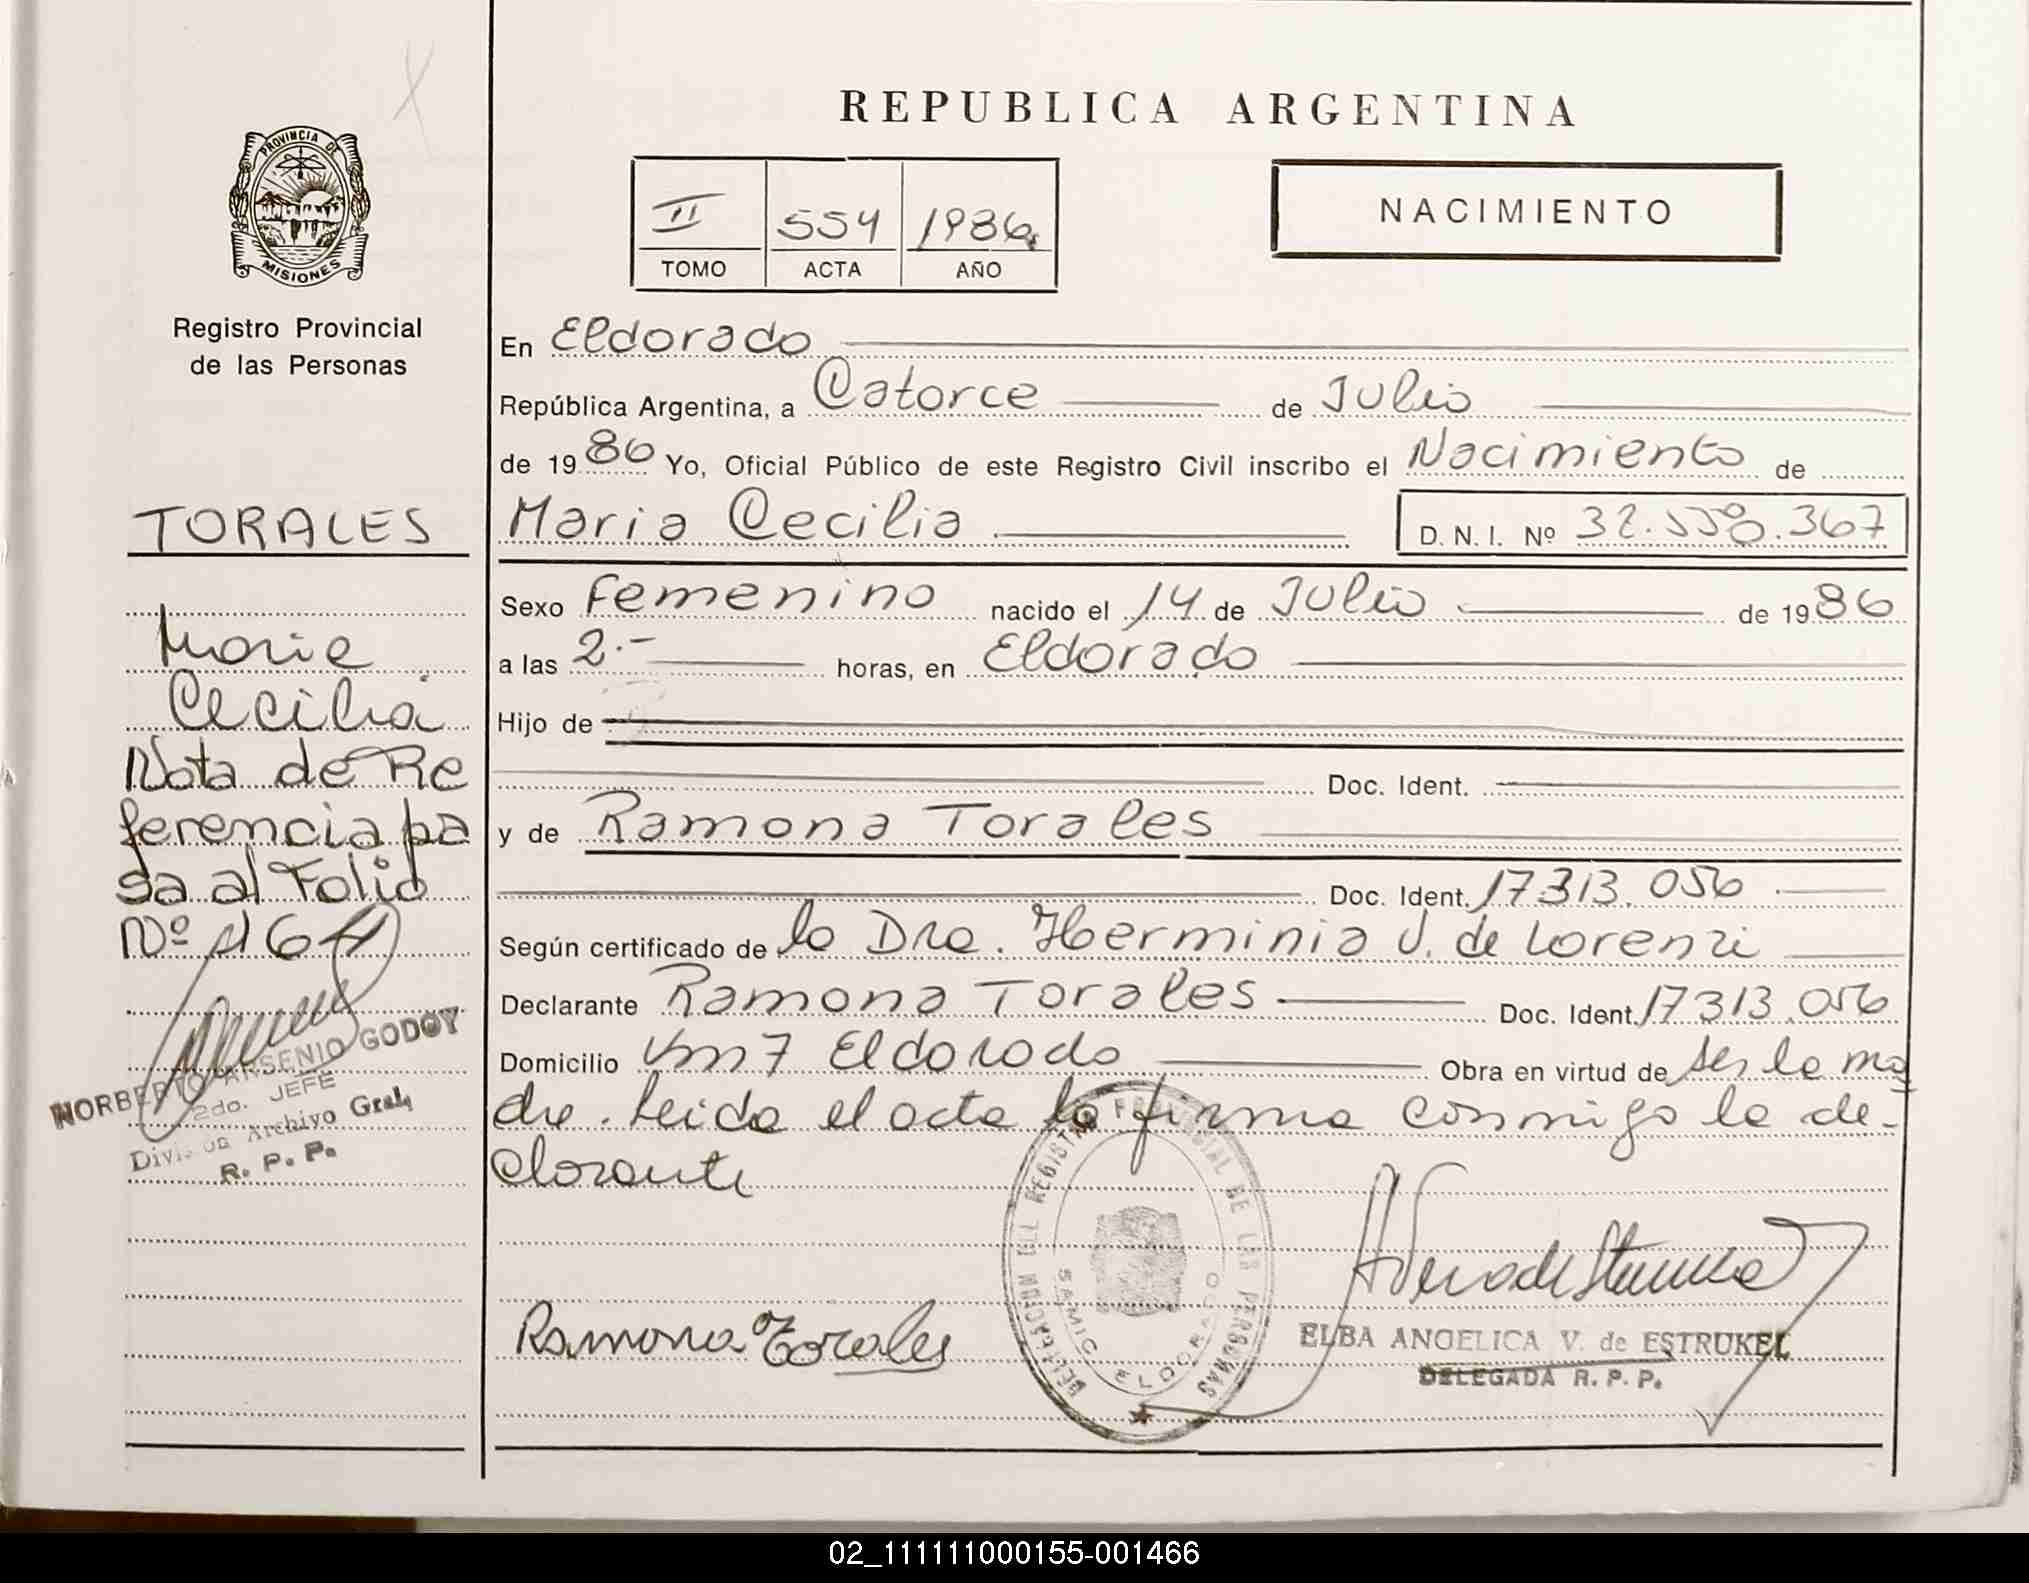 REPUBLICA ARGENTINA
PROVINCIA DE
MISIONES
Registro Provincial
de las Personas
II 554 1986
TOMO ACTA AÑO
NACIMIENTO
En Eldorado
República Argentina, a Catorce de Julio
de 1986 Yo, Oficial Público de este Registro Civil inscribo el Nacimiento de
Maria Cecilia D. N. I. Nº 32.550.367
Sexo Femenino nacido el 14 de Julio de 1986
a las 2.- horas, en Eldorado
Hijo de
Doc. Ident.
y de Ramona Torales
Doc. Ident. 17.313.056
Según certificado de la Dra. Herminia V. de Lorenzi
Declarante Ramona Torales Doc. Ident. 17313.056
Domicilio Km 7 Eldorado Obra en virtud de ser la ma
dre. Leida el acta la firma conmigo la de-
clarante
Ramona Torales
DELEGACION DEL REGISTRO PROVINCIAL DE LAS PERSONAS
SAMIC ELDORADO
ELBA ANGELICA V. de ESTRUKEL
DELEGADA R. P. P.
TORALES
Maria
Cecilia
Nota de Re
ferencia pa
sa al Folio
Nº 164
NORBERTO ARSENIO GODOY
2do. JEFE
División Archivo Gral.
R. P. P.
02_111111000155-001466